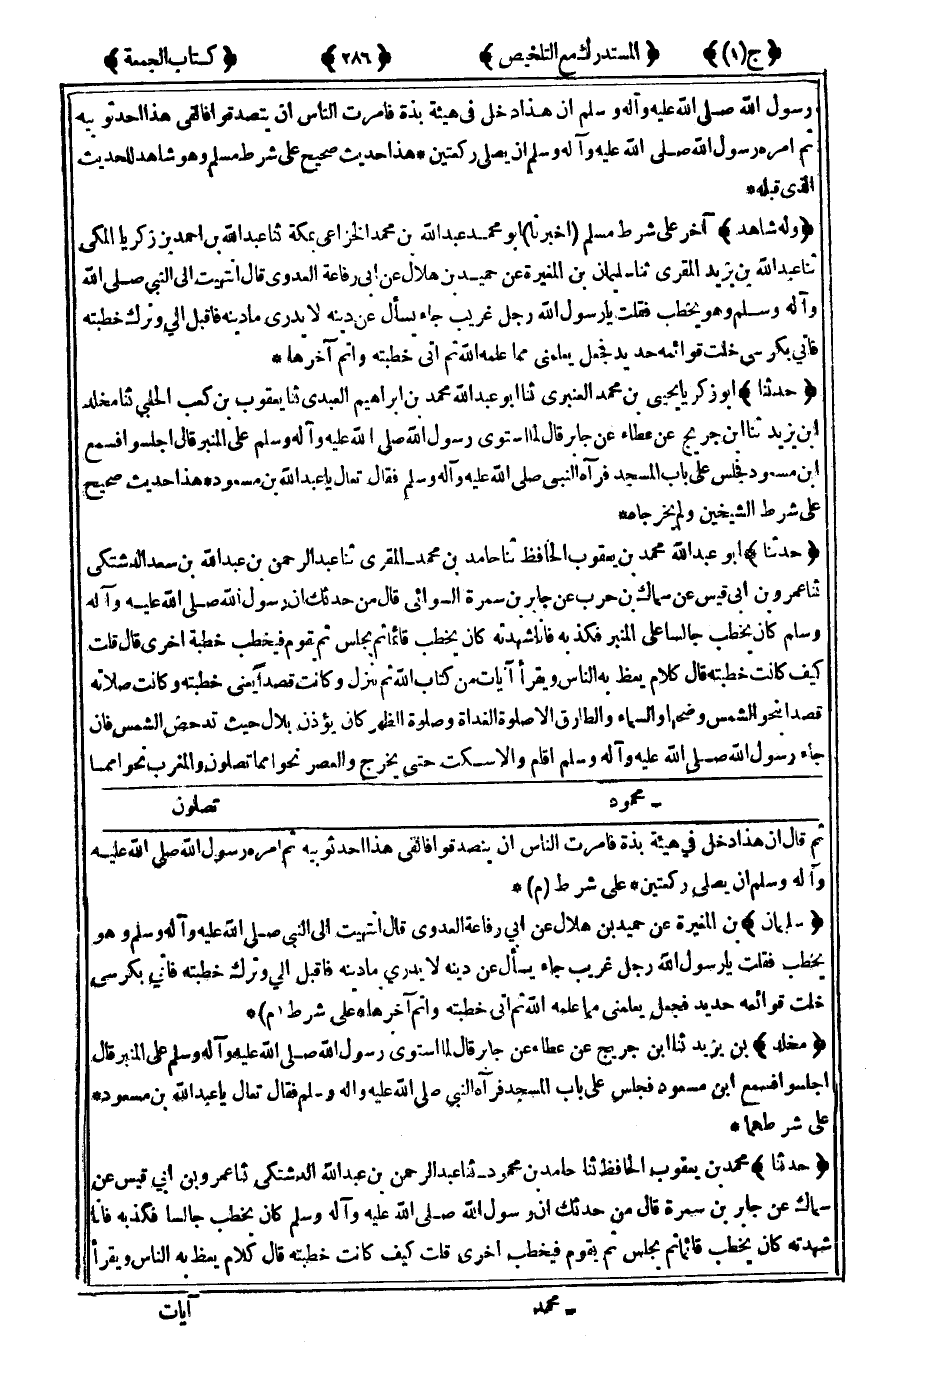 ﴿ ج (١) ﴾ ﴿ المستدرك مع التلخيص ﴾ ﴿ ٢٨٦ ﴾ ﴿ كتاب الجمعة ﴾
رسول الله صلى الله عليه وآله وسلم ان هذا دخل في هيئة بذة فامرت الناس ان يتصدقوا فالقى هذا احد ثوبيه
ثم امره رسول الله صلى الله عليه وآله وسلم ان يصلي ركعتين * هذا حديث صحيح على شرط مسلم وهو شاهد للحديث
الذى قبله *
﴿ وله شاهد ﴾ آخر على شرط مسلم (اخبرنا) ابو محمد عبدالله بن محمد الخزاعى بمكة ثنا عبدالله بن احمد بن زكريا المكى
ثنا عبدالله بن يزيد المقرى ثنا سليمان بن المغيرة عن حميد بن هلال عن ابى رفاعة العدوى قال انتهيت الى النبي صلى الله
وآله وسلم وهو يخطب فقلت يا رسول الله رجل غريب جاء يسأل عن دينه لا يدرى ما دينه فاقبل الي وترك خطبته
فاتي بكرسى خلت قوائمه حديد فجعل يعلمنى مما علمه الله ثم اتى خطبته واتم آخرها *
﴿ حدثنا ﴾ ابو زكريا يحيى بن محمد العنبرى ثنا ابو عبدالله محمد بن ابراهيم العبدى ثنا يعقوب بن كعب الحلبي ثنا مخلد
ابن يزيد ثنا ابن جريج عن عطاء عن جابر قال لما استوى رسول الله صلى الله عليه وآله وسلم على المنبر قال اجلسوا فسمع
ابن مسعود فجلس على باب المسجد فرآه النبى صلى الله عليه وآله وسلم فقال تعال يا عبدالله بن مسعود * هذا حديث صحيح
على شرط الشيخين ولم يخرجاه *
﴿ حدثنا ﴾ ابو عبدالله محمد بن يعقوب الحافظ ثنا حامد بن محمد ـ المقرى ثنا عبدالرحمن بن عبدالله بن سعد الدشتكى
ثنا عمرو بن ابى قيس عن سماك بن حرب عن جابر بن سمرة السوائى قال من حدثك ان رسول الله صلى الله عليه وآله
وسلم كان يخطب جالسا على المنبر فكذبه فانا شهدته كان يخطب قائما ثم يجلس ثم يقوم فيخطب خطبة اخرى قال قلت
كيف كانت خطبته قال كلام يعظ به الناس ويقرأ آيات من كتاب الله ثم ينزل وكانت قصدا يعنى خطبته وكانت صلاته
قصدا بنحو الشمس وضحها والسماء والطارق الا صلوة الغداة وصلوة الظهر كان يؤذن بلال حيث تدحض الشمس فان
جاء رسول الله صلى الله عليه وآله وسلم اقام والا سكت حتى يخرج والعصر نحوا مما تصلون والمغرب نحوا مما
ـ محمود تصلون
ثم قال ان هذا دخل في هيئة بذة فامرت الناس ان يتصدقوا فالقى هذا احد ثوبيه ثم امره رسول الله صلى الله عليه
وآله وسلم ان يصلى ركعتين * على شرط (م) *
﴿ سليمان ﴾ بن المغيرة عن حميد بن هلال عن ابي رفاعة العدوى قال انتهيت الى النبى صلى الله عليه وآله وسلم وهو
يخطب فقلت يا رسول الله رجل غريب جاء يسأل عن دينه لا يدري ما دينه فاقبل الي وترك خطبته فاتي بكرسى
خلت قوائمه حديد فجعل يعلمنى مما علمه الله ثم اتى خطبته واتم آخرها * على شرط (م) *
﴿ مخلد ﴾ بن يزيد ثنا ابن جريج عن عطاء عن جابر قال لما استوى رسول الله صلى الله عليه وآله وسلم على المنبر قال
اجلسوا فسمع ابن مسعود فجلس على باب المسجد فرآه النبي صلى الله عليه واله وسلم فقال تعال يا عبدالله بن مسعود *
على شرطهما *
﴿ حدثنا ﴾ محمد بن يعقوب الحافظ ثنا حامد بن محمود ـ ثنا عبدالرحمن بن عبدالله الدشتكى ثنا عمرو بن ابي قيس عن
سماك عن جابر بن سمرة قال من حدثك ان رسول الله صلى الله عليه وآله وسلم كان يخطب جالسا فكذبه فانا
شهدته كان يخطب قائما ثم يجلس ثم يقوم فيخطب اخرى قلت كيف كانت خطبته قال كلام يعظ به الناس ويقرأ
ـ محمد آيات